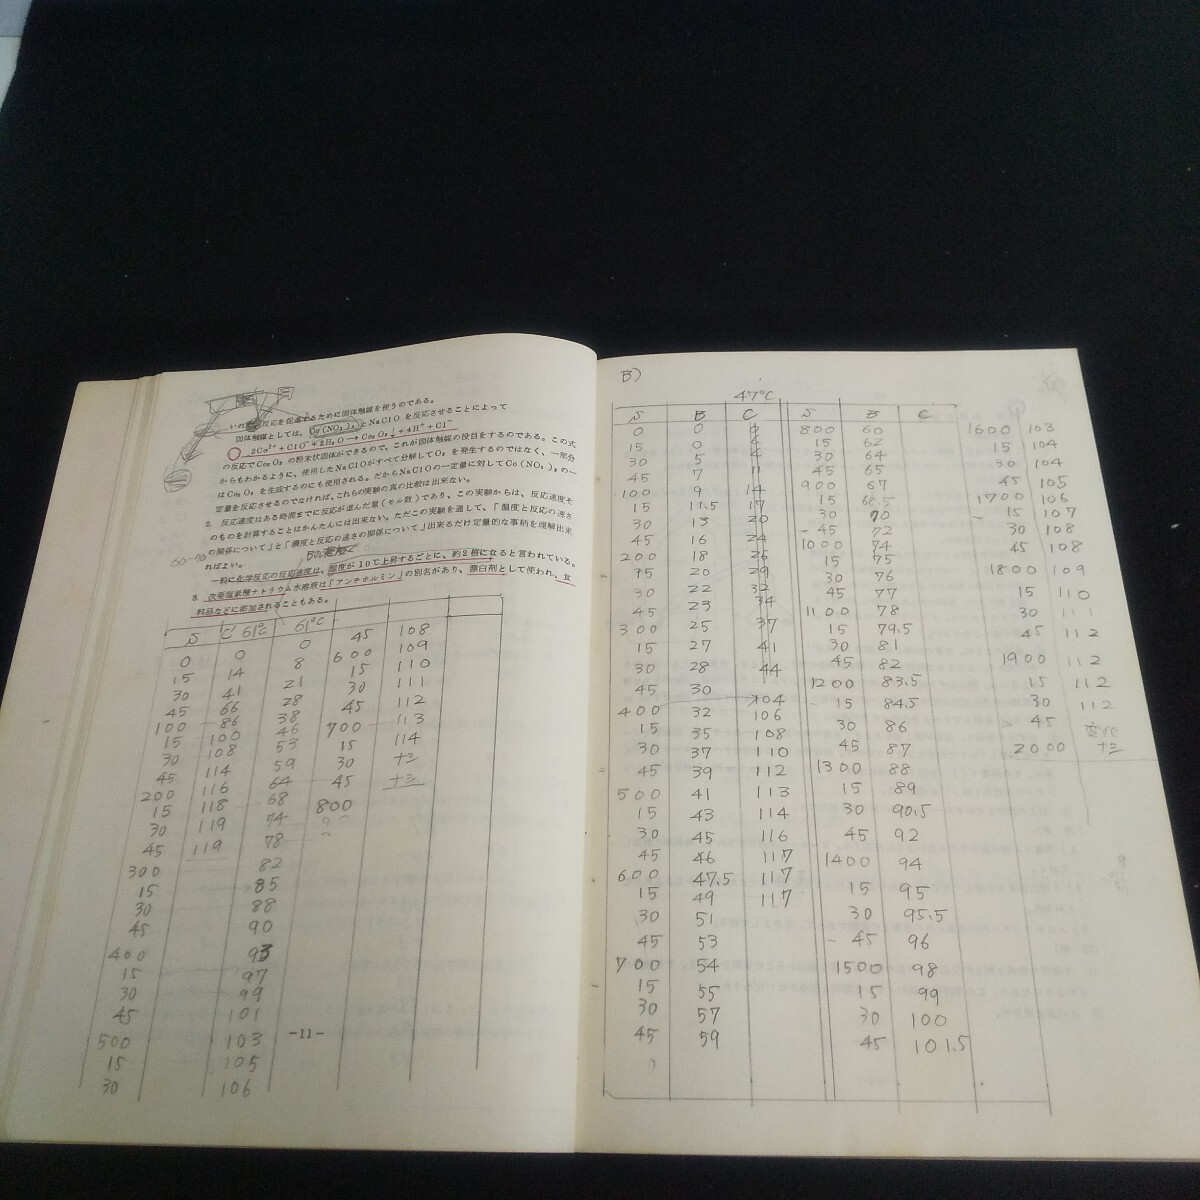 反応を促進するために固体触媒を使うのである。
固体触媒としては、Co(NO₃)₂とNaClOを反応させることによって
2Co²⁺+ClO⁻+2H₂O→Co₂O₃↓+4H⁺+Cl⁻
の反応でCo₂O₃の粉末状固体ができるので、これが固体触媒の役目をするのである。この式
からもわかるように、使用したNaClOがすべて分解してO₂を発生するのではなく、一部分
はCo₂O₃を生成するのにも使用される。だからNaClOの一定量に対してCo(NO₃)₂の一
定量を反応させるのでなければ、これらの実験の真の比較は出来ない。
2. 反応速度はある時間までに反応が進んだ量(モル数)であり、この実験からは、反応速度そ
のものを計算することはかんたんには出来ない。ただこの実験を通して、「温度と反応の速さ
の関係について」と「濃度と反応の速さの関係について」出来るだけ定量的な事柄を理解出来
ればよい。
一般に化学反応の反応速度は、温度が10℃上昇するごとに、約2倍になると言われている。
3. 次亜塩素酸ナトリウム水溶液は「アンチホルミン」の別名があり、漂白剤として使われ、食
料品などに添加されることもある。
S C 61℃ 61℃
0 0 0 45 108
15 14 8 600 109
30 41 21 15 110
45 66 28 30 111
100 86 38 45 112
15 100 46 700 113
30 108 53 15 114
45 114 59 30 ナシ
200 116 64 45 ナシ
15 118 68 800
30 119 74
45 119 78
300 82
15 85
30 88
45 90
400 93
15 97
30 99
45 101
500 103
15 105
30 106
-11-
B)
47℃
S B C S B C
0 0 800 60 1600 103
15 0 15 62 15 104
30 5 30 64 30 104
45 7 11 45 65 45 105
100 9 14 900 67 1700 106
15 11.5 17 15 68.5 15 107
30 13 20 30 70 30 108
45 16 24 45 72 45 108
200 18 26 1000 74 1800 109
15 20 29 15 75 15 110
30 22 32 30 76 30 111
45 23 34 45 77 45 112
300 25 37 1100 78 1900 112
15 27 41 15 79.5 15 112
30 28 44 30 81 30 112
45 30 45 82 45 変化
400 32 104 1200 83.5 2000 ナシ
15 35 106 15 84.5
30 37 108 30 86
45 39 110 45 87
500 41 112 1300 88
15 43 113 15 89
30 45 114 30 90.5
45 46 116 45 92
600 47.5 117 1400 94
15 49 117 15 95
30 51 117 30 95.5
45 53 45 96
700 54 1500 98
15 55 15 99
30 57 30 100
45 59 45 101.5